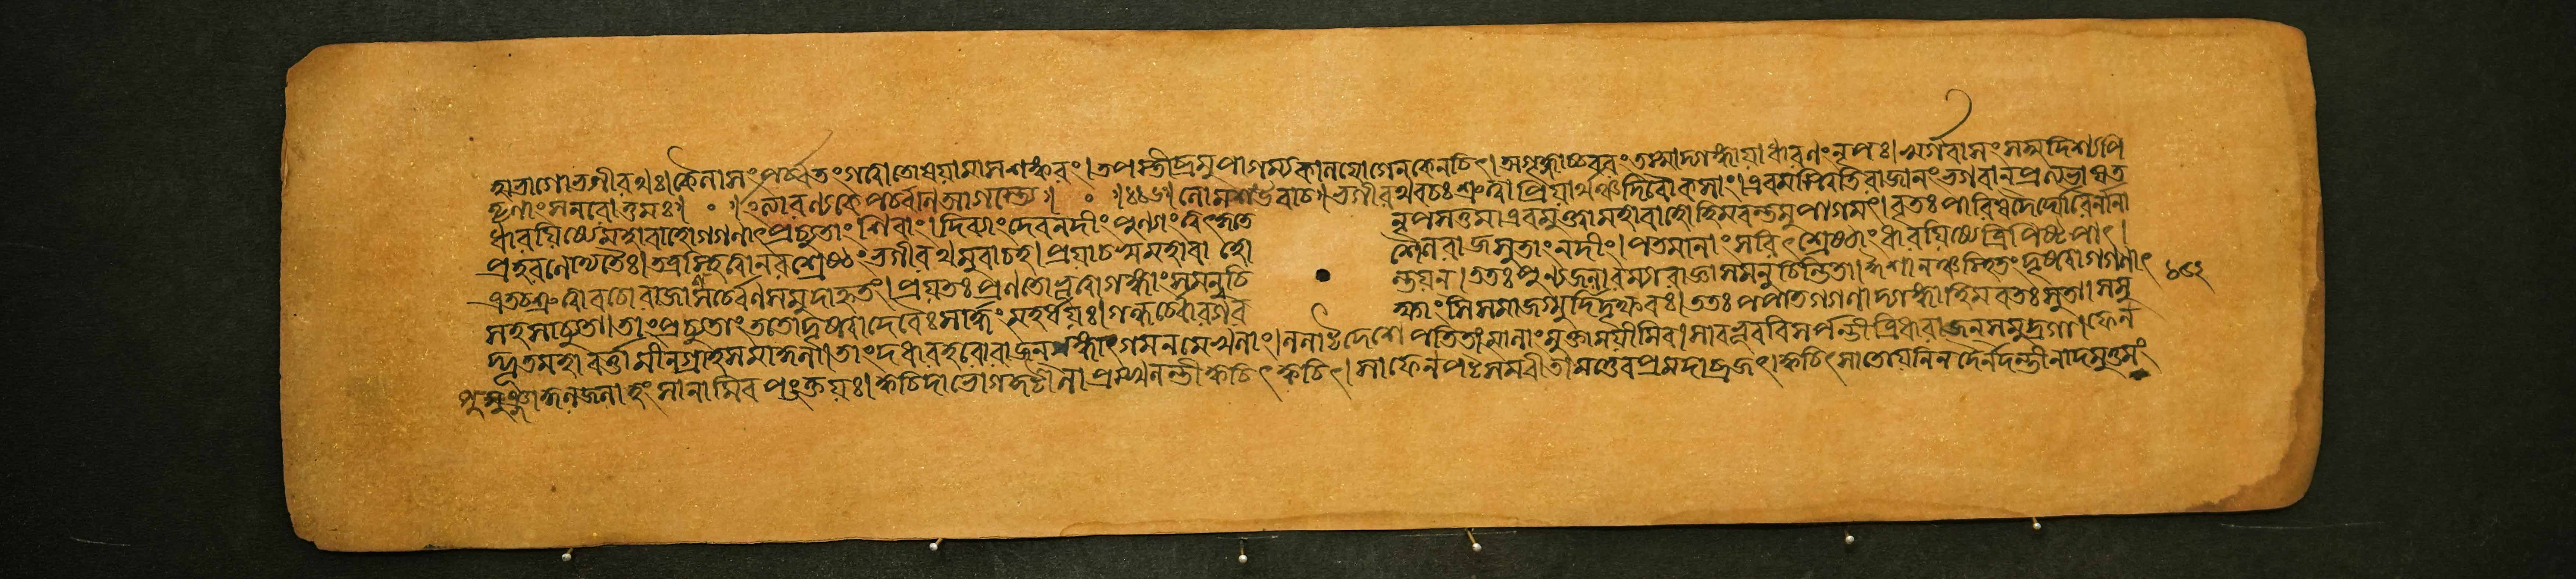 মহাভাগো ভগীরথঃ। কৈলাসং পর্ব্বতং গত্বা তোষয়ামাস শঙ্করং। তপস্তীব্রমুপাগম্য কালযোগেন কেনচিৎ। অগৃহ্ণাচ্চ বরং তস্মাদ্গঙ্গায়া ধারণং নৃপঃ। স্বর্গবাসং সমুদ্দিশ্য পি
তৄণাং স নরোত্তমঃ॥ ॰ ॥ইত্যারণ্যকে পর্ব্বণি আগস্ত্যে॥ ॰ ॥ লোমশ উবাচ॥ ভগীরথবচঃ শ্রুত্বা প্রিয়ার্থঞ্চ দিবৌকসাং। এবমস্ত্বিতি রাজানং ভগবান্ প্রত্যভাষত
ধারয়িষ্যে মহাবাহো গগণাৎ প্রচ্যুতাং শিবাং। দিব্যাং দেবনদীং পুণ্যাং ত্বৎকৃতে নৃপসত্তম। এবমুক্ত্বা মহাবাহো হিমবন্তমুপাগমৎ। বৃতঃ পারিষদৈর্ঘোরৈর্নানা
প্রহরণোদ্যতৈঃ। তত্র স্থিত্বা নরশ্রেষ্ঠং ভগীরথমুবাচ হ। প্রযাচস্ব মহাবাহো শৈলরাজসুতাং নদীং। পতমানাং সরিৎশ্রেষ্ঠাং ধারয়িষ্যে ত্রিপিষ্টপাৎ।
এতচ্ছ্রুত্বা বচো রাজা শর্ব্বেণ সমুদাহৃতং। প্রয়তঃ প্রণতো ভূত্বা গঙ্গাং সমনুচিন্তয়ন। ততঃ পুণ্যজলা রম্যা রাজ্ঞা সমনুচিন্তিতা। ঈশানঞ্চ স্থিতং দৃষ্ট্বা গগণাৎ
সহসা চ্যুতা। তাং প্রচ্যুতাং ততো দৃষ্ট্বা দেবৈঃ সার্দ্ধং মহর্ষয়ঃ। গন্ধর্ব্বোরগর ক্ষাংসি সমাজগ্মুর্দিদৃক্ষবঃ। ততঃ পপাত গগণাদ্গঙ্গা হিমবতঃ সুতা। সমু
দ্ভূতমহাবর্ত্তা মীনগ্রাহসমাকুলা। তাং দধার হরো রাজন্ গঙ্গাং গগনমেখলাং। ললাটদেশে পতিতাং মালাং মুক্তাময়ীমিব। সা বভূব বিসর্পন্তী ত্রিধা রাজন্ সমুদ্রগা। ফেন
পুঞ্জাকুলজলা হংসানামিব পংক্তয়ঃ। ক্বচিদাভোগকুটিলা প্রস্খলন্তী ক্বচিৎ ক্বচিৎ। সা ফেনপটসংবীতা মত্তেব প্রমদাব্রজৎ। ক্বচিৎ সা তোয়নিনদৈর্নদন্তী নাদমুত্তমং